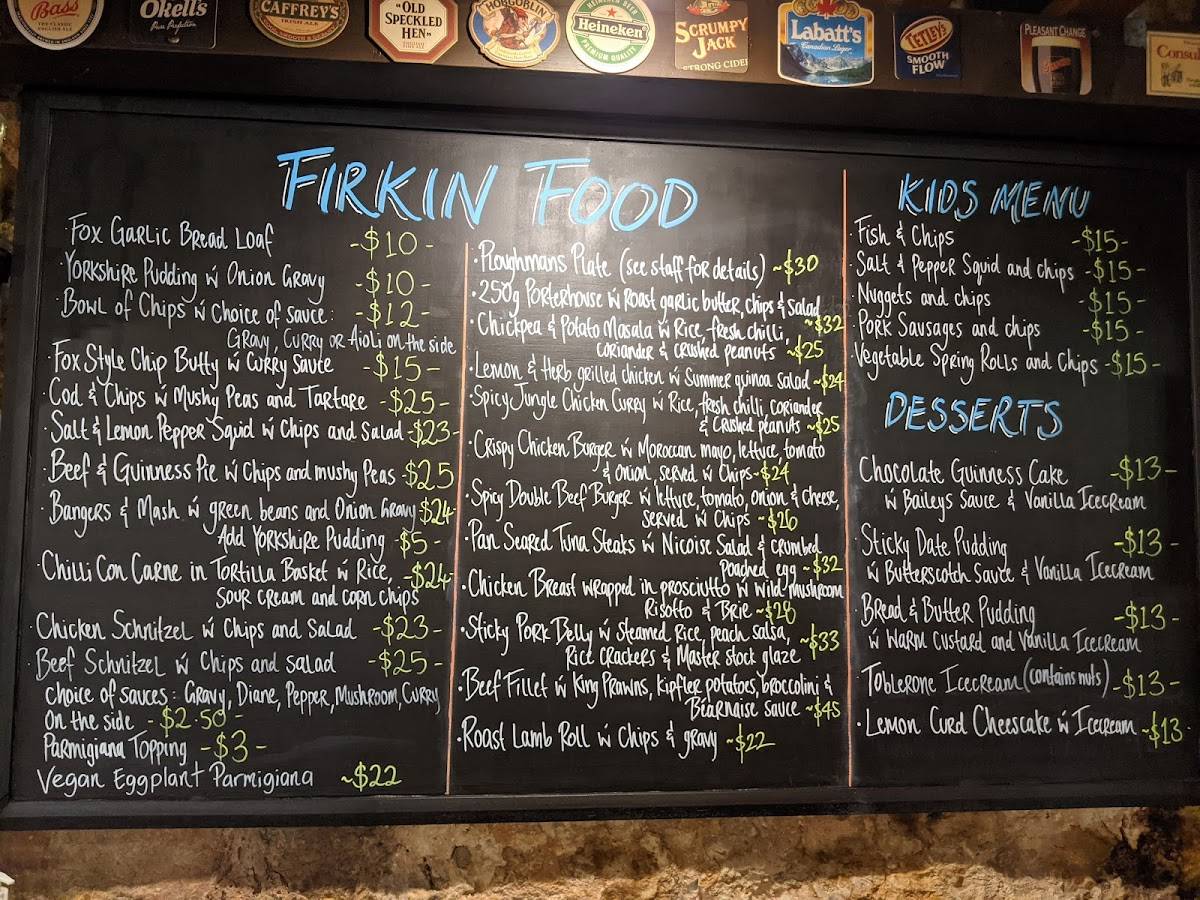 Bass
THE CLASSIC
ENGLISH ALE
Okells
CAFFREY'S
IRISH ALE
"OLD
SPECKLED
HEN"
HOBGOBLIN
Heineken
PREMIUM QUALITY
SCRUMPY
JACK
STRONG CIDER
Labatt's
Canadian Lager
TETLEY'S
SMOOTH
FLOW
PLEASANT CHANGE
FIRKIN FOOD
Fox Garlic Bread Loaf -$10-
Yorkshire Pudding w Onion Gravy -$10-
Bowl of Chips w Choice of sauce: -$12-
Gravy, Curry or Aioli on the side
Fox Style Chip Butty w Curry Sauce -$15-
Cod & Chips w Mushy Peas and Tartare -$25-
Salt & Lemon Pepper Squid w Chips and Salad -$23-
Beef & Guinness Pie w Chips and mushy Peas -$25
Bangers & Mash w green beans and Onion Gravy $24-
Add Yorkshire Pudding -$5-
Chilli Con Carne in Tortilla Basket w Rice, -$24-
Sour Cream and corn chips
Chicken Schnitzel w Chips and Salad -$23-
Beef Schnitzel w Chips and salad -$25-
Choice of sauces: Gravy, Diane, Pepper, Mushroom, Curry
On the side -$2.50-
Parmigiana Topping -$3-
Vegan Eggplant Parmigiana ~$22
·Ploughmans Plate (see staff for details) ~$30
·250g Porterhouse w Roast garlic butter, chips & Salad
~$32
·Chickpea & Potato Masala w Rice, fresh chilli,
coriander & crushed peanuts ~$25
·Lemon & Herb grilled chicken w Summer quinoa salad ~$24
·Spicy Jungle Chicken Curry w Rice, fresh chilli, coriander
& Crushed peanuts ~$25
·Crispy Chicken Burger w Moroccan mayo, lettuce, tomato
& onion, served w Chips -$24
·Spicy Double Beef Burger w lettuce, tomato, onion & cheese,
served w Chips ~$26
·Pan Seared Tuna Steaks w Nicoise Salad & crumbed
poached egg ~$32
·Chicken Breast wrapped in prosciutto w wild mushroom
Risotto & Brie ~$28
·Sticky Pork Belly w Steamed Rice, peach salsa, ~$33
Rice Crackers & Master stock glaze
·Beef Fillet w King Prawns, Kipfler potatoes, broccolini &
Bearnaise sauce ~$45
·Roast Lamb Roll w Chips & gravy ~$22
KIDS MENU
Fish & Chips -$15-
·Salt & Pepper Squid and chips -$15-
·Nuggets and chips -$15-
·Pork Sausages and chips -$15-
·Vegetable Spring Rolls and Chips -$15-
DESSERTS
Chocolate Guinness Cake -$13-
w Baileys Sauce & Vanilla Icecream
·Sticky Date Pudding -$13-
w Butterscotch Sauce & Vanilla Icecream
Bread & Butter Pudding -$13-
w Warm Custard and Vanilla Icecream
Toblerone Icecream (contains nuts) -$13-
·Lemon Curd Cheesecake w Icecream ~$13-